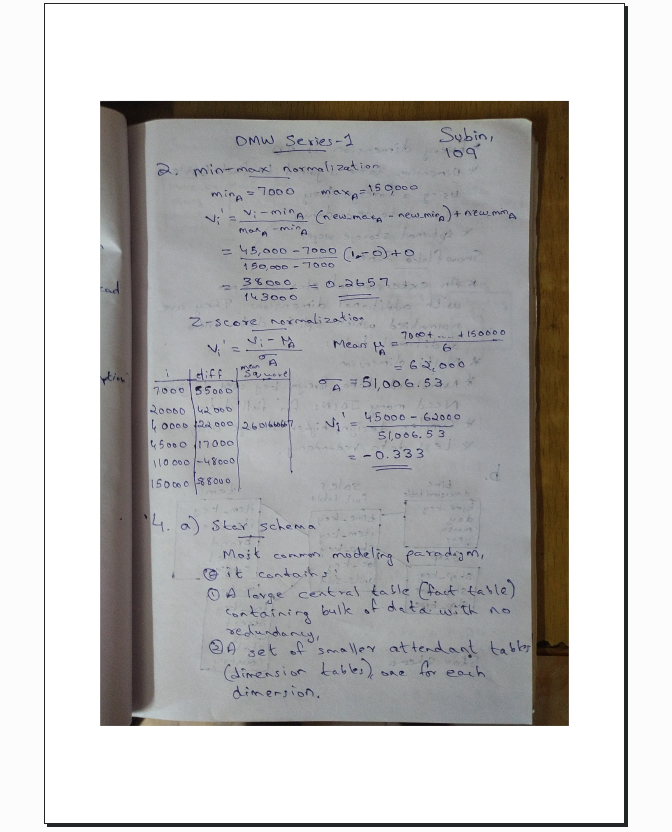 DMW Series-1
Subin,
109
2. min-max normalization
min_A = 7000 max_A = 150,000
v_i' = (v_i - min_A) / (max_A - min_A) (new_max_A - new_min_A) + new_min_A
= (45,000 - 7000) / (150,000 - 7000) (1 - 0) + 0
= 38000 / 143000 = 0.2657
Z-score normalization
v_i' = (v_i - μ_A) / σ_A Mean μ_A = (7000 + .... + 150000) / 6
= 62,000
σ_A = 51,006.53
i diff mean square
7000 55000
20000 42000
40000 22000
45000 17000
110000 -48000
150000 -88000
v_i' = (45000 - 62000) / 51,006.53
= -0.333
4. a) Star schema
Most common modeling paradigm,
it contains:
① A large central table (fact table)
containing bulk of data with no
redundancy,
② A set of smaller attendant tables
(dimension tables), one for each
dimension.